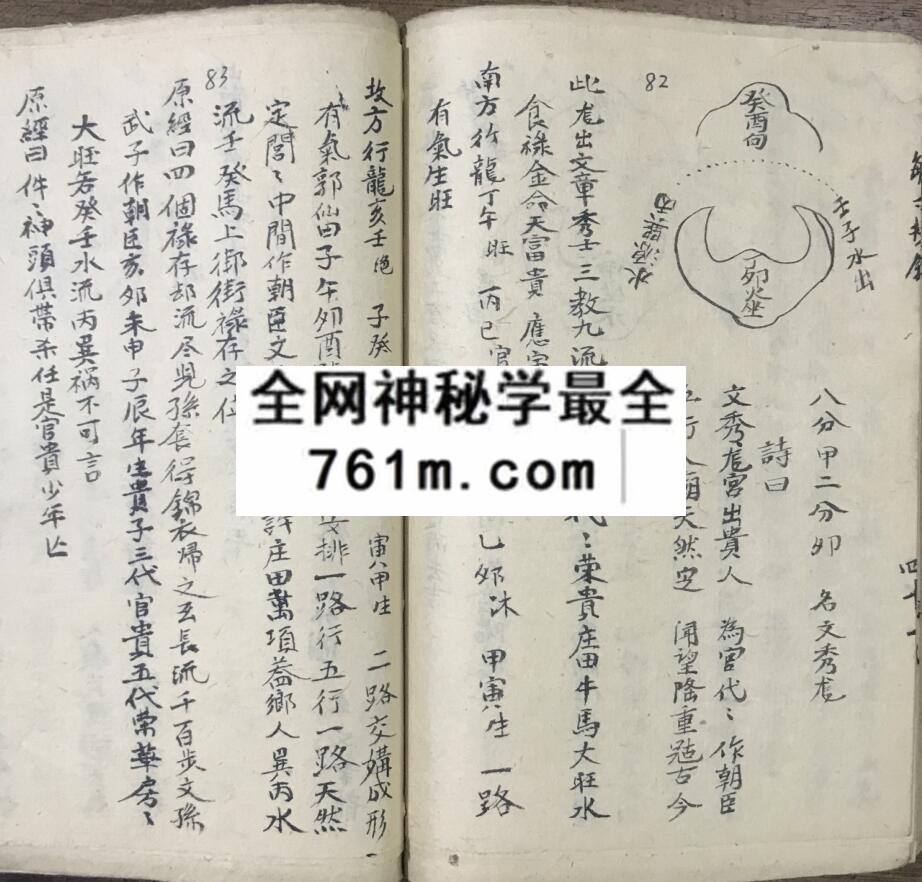 82
癸酉向
壬子水出
丁卯火坐
八分甲二分卯 名文秀龙
詩曰
文秀龙宮出貴人 為官代〻作朝臣
天然定 闻望隆重冠古今
此龙出文章秀士三教九流 代〻荣貴庄田牛馬大旺水
食禄金命天富貴 應
南方行龍丁午旺 丙巳官 乙卯沐 甲寅生 一路
有氣生旺
83
坎方行龍亥壬绝 子癸 寅甲生 二路交媾成形一
有氣郭仙曰子午卯酉 安排一路行五行一路天然
定閣〻中間作朝臣文 許庄田萬項蓋鄉人巽丙水
流壬癸馬上御街禄存之位
原經曰四個禄存却流尽児孫套得錦衣帰之玄長流千百步文孫
武子作朝臣亥卯未申子辰年出貴子三代官貴五代荣華房〻
大旺若癸壬水流丙巽禍不可言
原經曰件〻神頭俱帶杀任是官貴少年亡
全网神秘学最全
761m.com